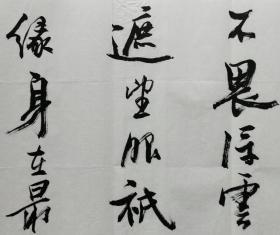 不畏浮雲
遮望眼祇
緣身在最